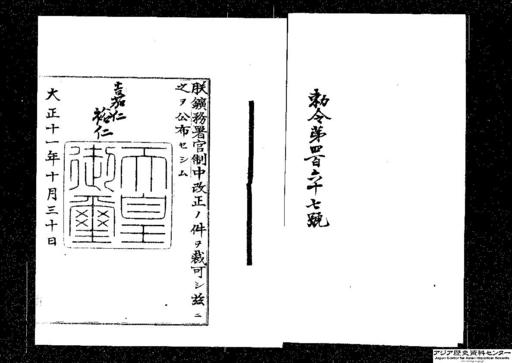 勅令第四百六十七號
朕鑛務署官制中改正ノ件ヲ裁可シ茲ニ
之ヲ公布セシム
嘉仁
裕仁
天皇御璽
大正十一年十月三十日
アジア歴史資料センター
Japan Center for Asian Historical Records